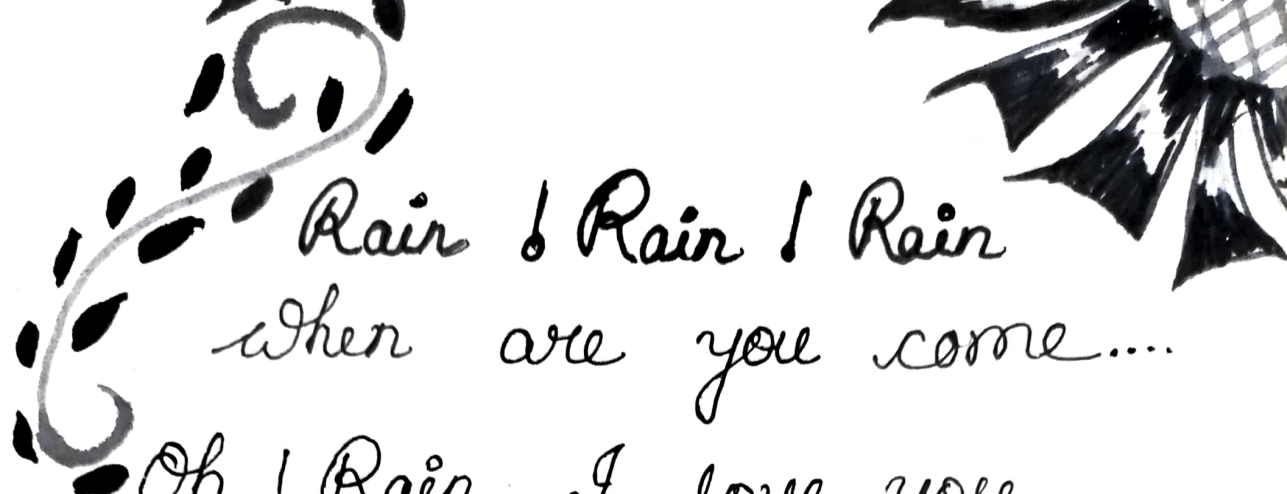 Rain ! Rain ! Rain
when are you come....
Oh ! Rain I love you